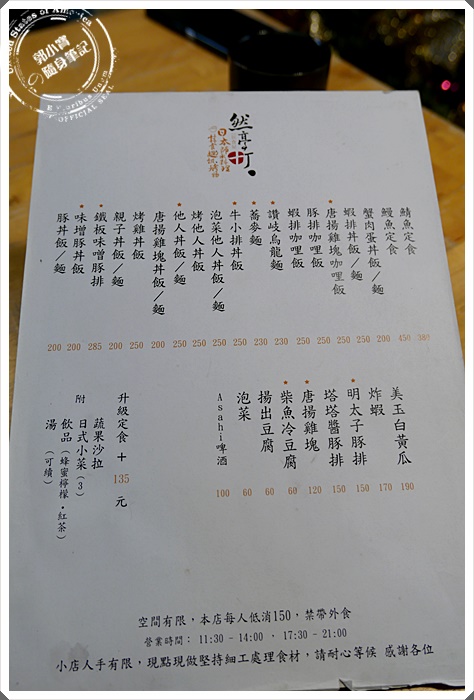 郭小寶
の隨身筆記
OFFICIAL SEAL
然亭町
鯖魚定食 380
鰻魚定食 450
蟹肉蛋丼飯/麵 200
蝦排丼飯/麵 200
唐揚雞塊咖哩飯 250
豚排咖哩飯 250
蝦排咖哩飯 250
讚岐烏龍麵 230
蕎麥麵 230
牛小排丼飯 250
泡菜他人丼飯/麵 250
烤他人丼飯 250
他人丼飯/麵 250
唐揚雞塊丼飯/麵 200
烤雞丼飯 250
親子丼飯/麵 200
鐵板味噌豚排 285
味噌豚丼飯 200
豚丼飯/麵 200
美玉白黃瓜 190
炸蝦 170
明太子豚排 150
塔塔醬豚排 150
唐揚雞塊 120
柴魚冷豆腐 60
揚出豆腐 60
泡菜 60
Asahi啤酒 100
升級定食+135元
附 蔬果沙拉
日式小菜(3)
飲品(蜂蜜檸檬・紅茶)
湯(可續)
空間有限,本店每人低消150,禁帶外食
營業時間: 11:30 - 14:00 ・ 17:30 - 21:00
小店人手有限,現點現做堅持細工處理食材,請耐心等候 感謝各位